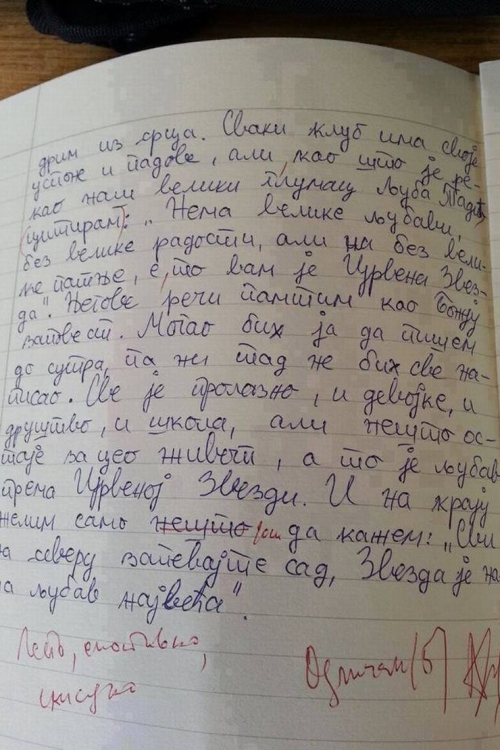 дрим из срца. Сваки клуб има своје
успоне и падове, али, као што је ре-
као наш велики глумац Љуба Тадић
(цитирам): „Нема велике љубави,
без велике радости, али ни без вели-
ке патње, е, то вам је Црвена Звез-
да". Његове речи памтим као Божју
заповест. Могао бих ја да пишем
до сутра, па ни тад не бих све на-
писао. Све је пролазно, и девојке, и
друштво, и школа, али нешто ос-
таје за цео живот, а то је љубав
према Црвеној Звезди. И на крају
желим само нешто још да кажем: „Сви
на северу запевајте сад, Звезда је на
ша љубав највећа".
Лепо, емотивно,
искусно
Одличан (5)